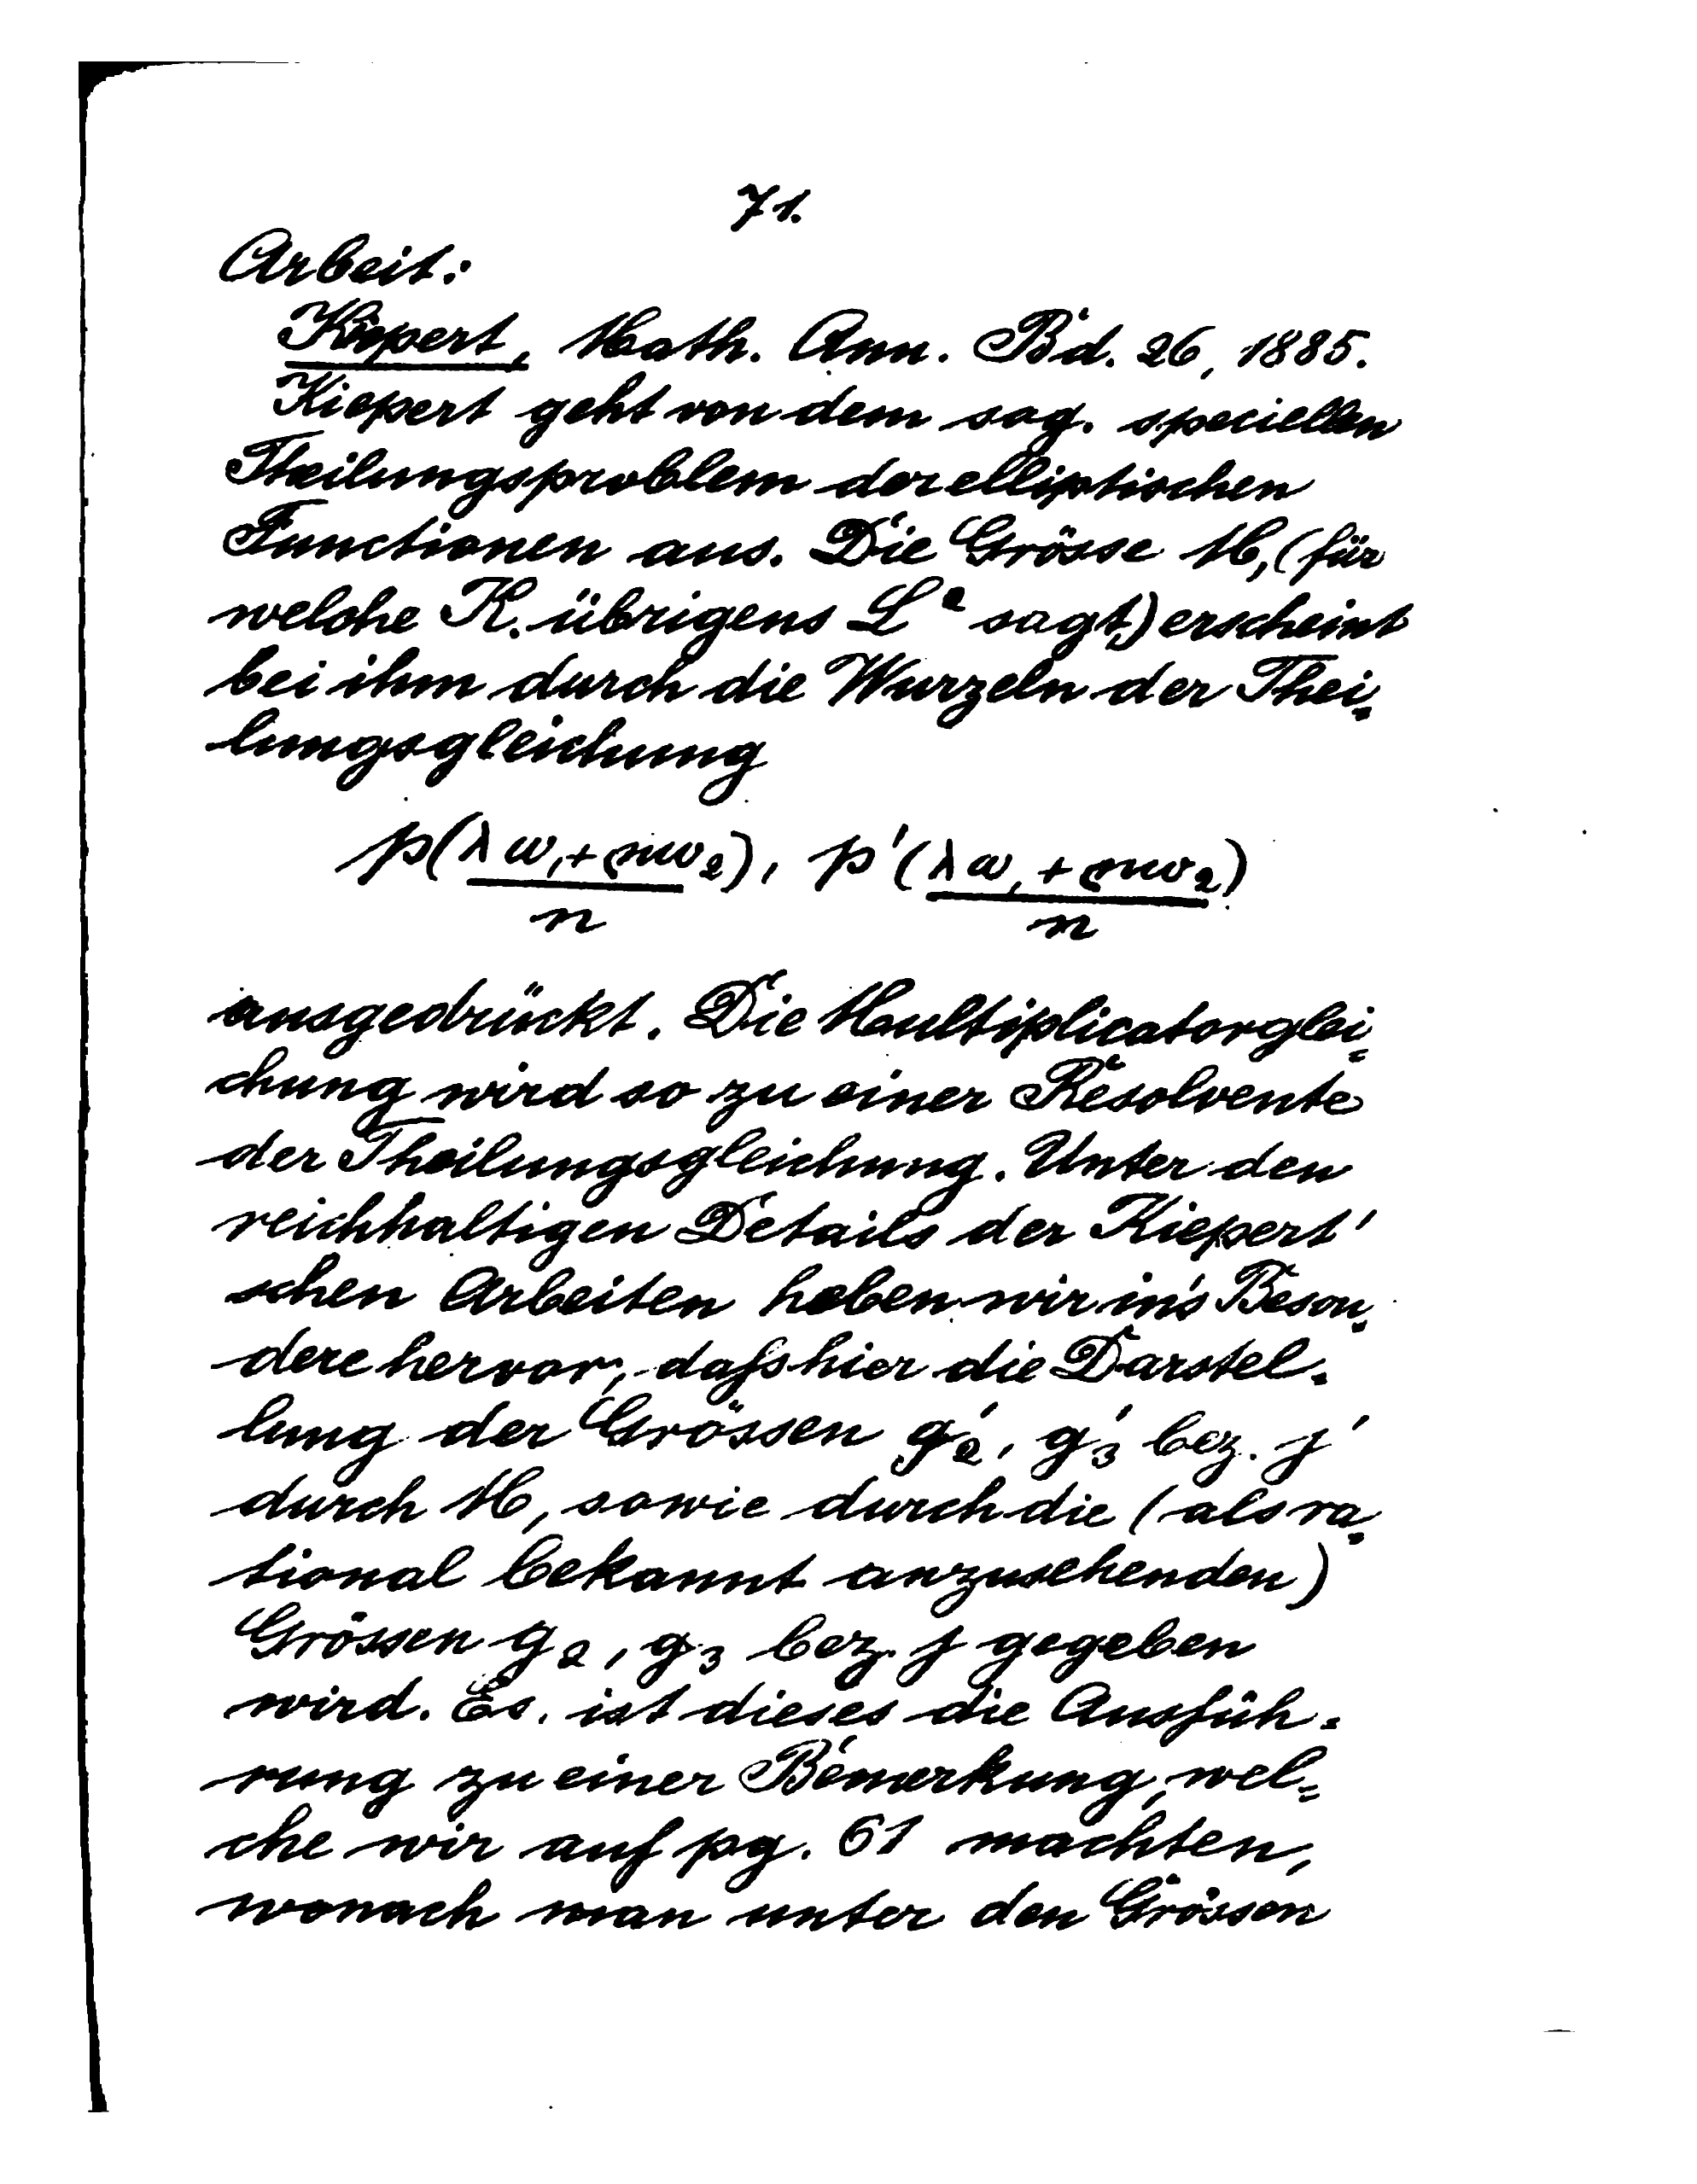 71.
Arbeit:
Kiepert, Math. Ann. Bd. 26, 1885.
Kiepert geht von dem sog. speciellen
Theilungsproblem der elliptischen
Functionen aus. Die Grösse M, (für
welche K. übrigens L² sagt,) erscheint
bei ihm durch die Wurzeln der Thei=
lungsgleichung
p(λω₁+μω₂), p'(λω₁+μω₂)
n n
ausgedrückt. Die Multiplicatorglei=
chung wird so zu einer Resolvente
der Theilungsgleichung. Unter den
reichhaltigen Details der Kiepert'
schen Arbeiten heben wir in's Beson=
dere hervor, daſs hier die Darstel=
lung der Grössen g₂', g₃' bez. j'
durch M, sowie durch die (als ra=
tional bekannt anzusehenden)
Grössen g₂, g₃ bez. j gegeben
wird. Es ist dieses die Ausfüh=
rung zu einer Bemerkung, wel=
che wir auf pg. 61 machten,
wonach man unter den Grössen